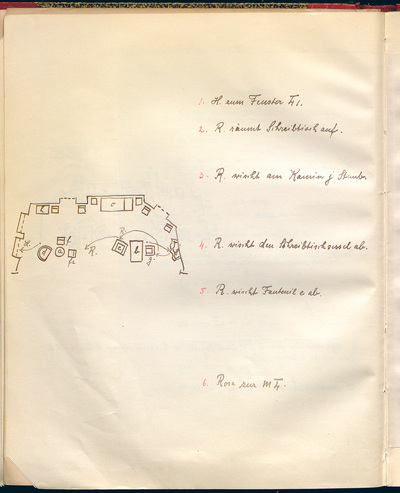 1. H. zum Fenster
2. R. räumt Schreibtisch auf.
3. R. wischt am Kamin Staub
4. R. wischt den Schreibtischsessel ab.
5. R. wischt Fauteuil c ab.
6. Rosa zur
H.
R.
R.
c
b
f